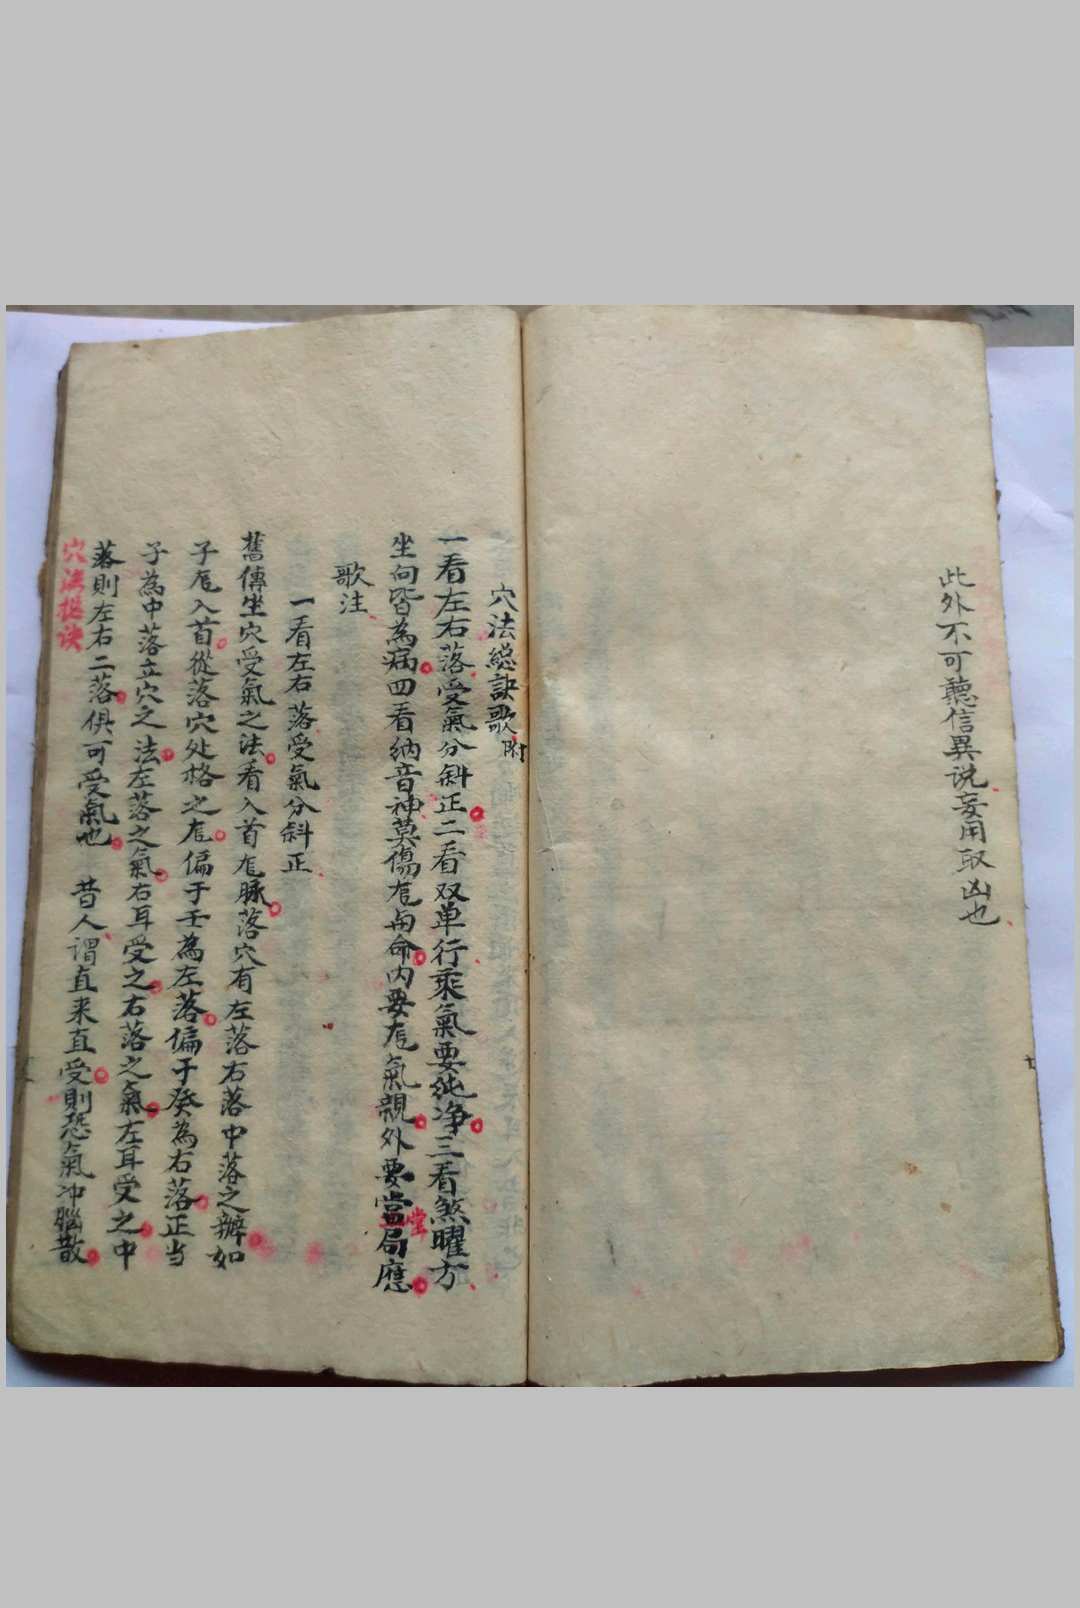 此外不可聽信異说妄用取凶也
穴法總訣歌附
一看左右落受氣分斜正二看双单行乘氣要纯净三看煞曜方
坐向皆為病四看納音神莫傷龙与命内要龙氣親外要當局應
堂
歌注
一看左右落受氣分斜正
舊傳坐穴受氣之法看入首龙脉落穴有左落右落中落之辨如
子龙入首從落穴处格之龙偏于壬為左落偏于癸為右落正当
子為中落立穴之法左落之氣右耳受之右落之氣左耳受之中
落則左右二落俱可受氣也 昔人謂直来直受則恐氣冲腦散
穴法總訣